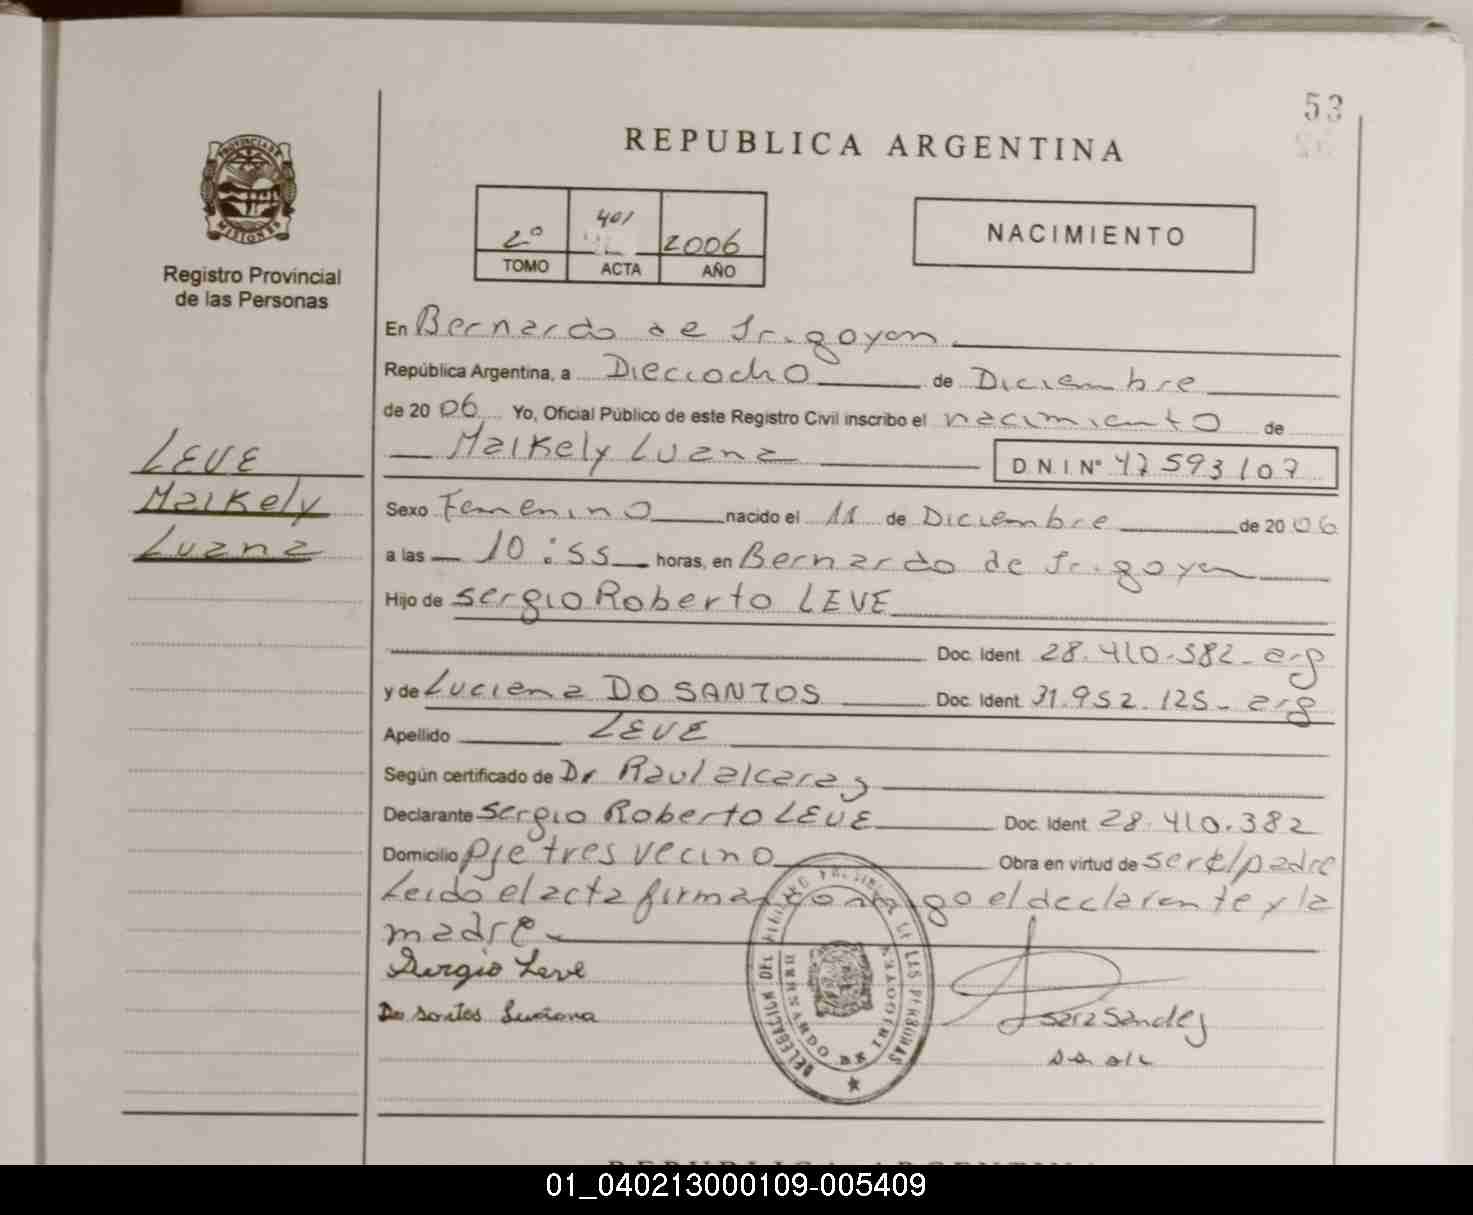 53
REPUBLICA ARGENTINA
PROVINCIA DE
MISIONES
Registro Provincial
de las Personas
2º 401 2006
TOMO ACTA AÑO
NACIMIENTO
En Bernardo de Irigoyen
República Argentina, a Dieciocho de Diciembre
de 2006 Yo, Oficial Público de este Registro Civil inscribo el nacimiento de
Maikely Luana DNI Nº 47593107
LEVE
Maikely
Luana
Sexo Femenino nacido el 11 de Diciembre de 2006
a las 10:55 horas, en Bernardo de Irigoyen
Hijo de Sergio Roberto LEVE
Doc. Ident. 28.410.382- arg
y de Luciana DO SANTOS Doc. Ident. 31.952.125- arg
Apellido LEVE
Según certificado de Dr Raul alcaraz
Declarante Sergio Roberto LEVE Doc. Ident. 28.410.382
Domicilio Pje tres vecino Obra en virtud de ser el padre
Leido el acta firman conmigo el declarante y la
madre
Sergio Leve
Do santos Luciana
DELEGACION DEL REGISTRO PROVINCIAL DE LAS PERSONAS
BERNARDO DE IRIGOYEN
REPUBLICA ARGENTINA
01_040213000109-005409